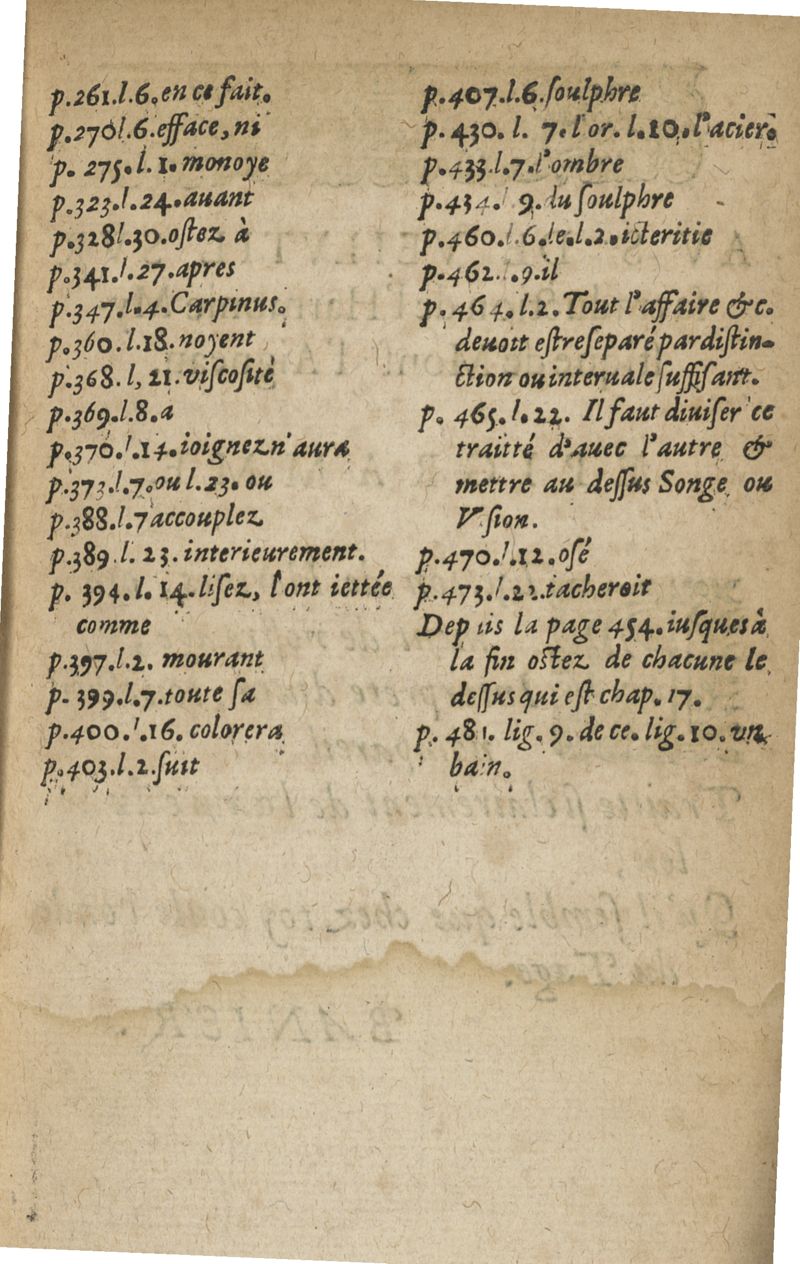 p.261.l.6.en ce fait.
p.270 l.6.efface, ni
p. 275. l. 1. monoye
p.323.l.24.auant
p.328 l.30.ostez à
p.341.l.27.apres
p.347.l.4.Carpinus.
p.360.l.18.noyent
p.368.l, 21.viscosité
p.369.l.8.a
p.370.l.14.ioignez n'aura
p.373.l.7.ou l.23. ou
p.388.l.7 accouplez
p.389 l. 23. interieurement.
p. 394. l. 14. lisez, l'ont iettée
comme
p.397.l.2. mourant
p. 399.l.7.toute sa
p.400.l.16. colorera
p.403.l.2.suit
p.407.l.6.soulphre
p. 430. l. 7. l'or. l.10. l'acier.
p.433.l.7.l'ombre
p.434.l 9. du soulphre
p.460.l.6.le.l.2.icteritie
p.462.l.9.il
p. 464. l.2. Tout l'affaire &c.
deuoit estre separé par distin-
ction ou interuale suffisant.
p. 465. l. 22. Il faut diuiser ce
traitté d'auec l'autre &
mettre au dessus Songe ou
Vision.
p.470.l.12.osé
p.473.l.22.tacheroit
Depuis la page 454. iusques à
la fin ostez de chacune le
dessus qui est chap. 17.
p. 481. lig. 9. de ce. lig. 10. vn
bain.